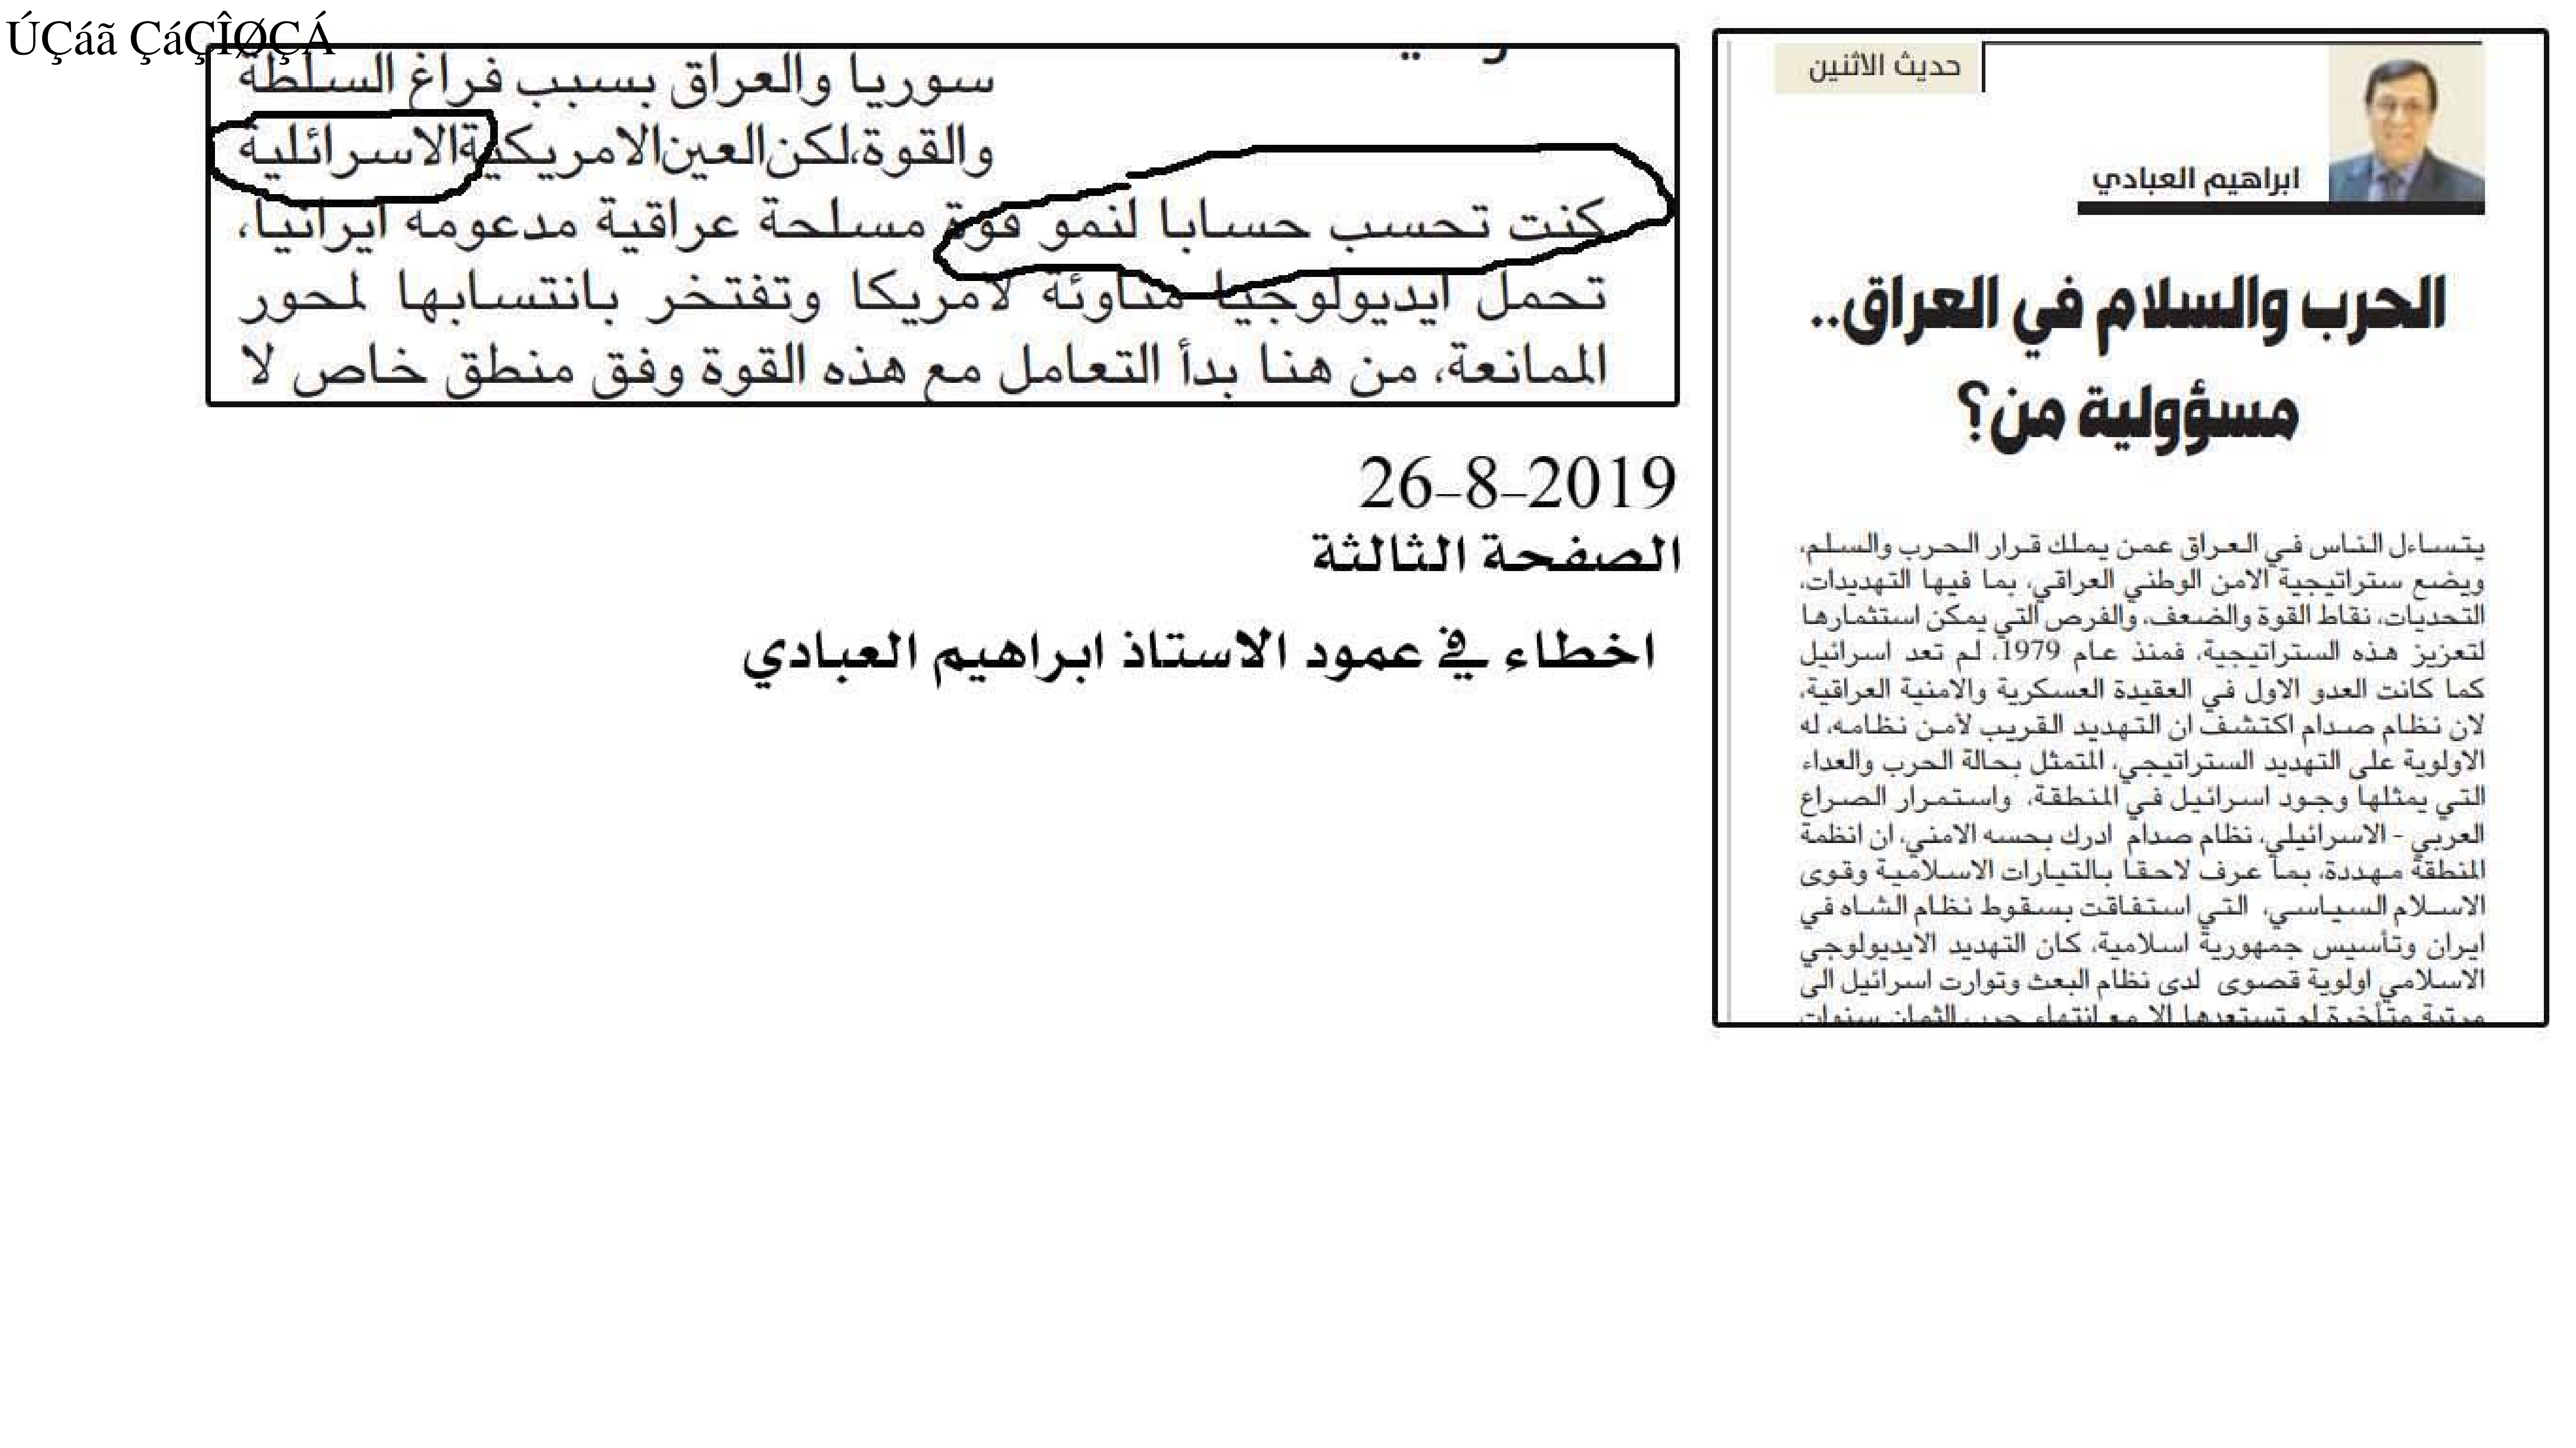 ÚÇáã ÇáÇÎØÇÁ
حديث الاثنين
ابراهيم العبادي
الحرب والسلام في العراق..
مسؤولية من؟
يتساءل الناس في العراق عمن يملك قرار الحرب والسلم،
ويضع ستراتيجية الامن الوطني العراقي، بما فيها التهديدات،
التحديات، نقاط القوة والضعف، والفرص التي يمكن استثمارها
لتعزيز هذه الستراتيجية، فمنذ عام 1979، لم تعد اسرائيل
كما كانت العدو الاول في العقيدة العسكرية والامنية العراقية،
لان نظام صدام اكتشف ان التهديد القريب لأمن نظامه، له
الاولوية على التهديد الستراتيجي، المتمثل بحالة الحرب والعداء
التي يمثلها وجود اسرائيل في المنطقة، واستمرار الصراع
العربي - الاسرائيلي، نظام صدام ادرك بحسه الامني، ان انظمة
المنطقة مهددة، بما عرف لاحقا بالتيارات الاسلامية وقوى
الاسلام السياسي، التي استفاقت بسقوط نظام الشاه في
ايران وتأسيس جمهورية اسلامية، كان التهديد الايديولوجي
الاسلامي اولوية قصوى لدى نظام البعث وتوارت اسرائيل الى
مرتبة متأخرة لم تستعدها الا مع انتهاء حرب الثمان سنوات
سوريا والعراق بسبب فراغ السلطة
والقوة،لكن العين الامريكية الاسرائلية
كنت تحسب حسابا لنمو قوة مسلحة عراقية مدعومة ايرانيا،
تحمل ايديولوجيا مناوئة لامريكا وتفتخر بانتسابها لمحور
الممانعة، من هنا بدأ التعامل مع هذه القوة وفق منطق خاص لا
26-8-2019
الصفحة الثالثة
اخطاء في عمود الاستاذ ابراهيم العبادي